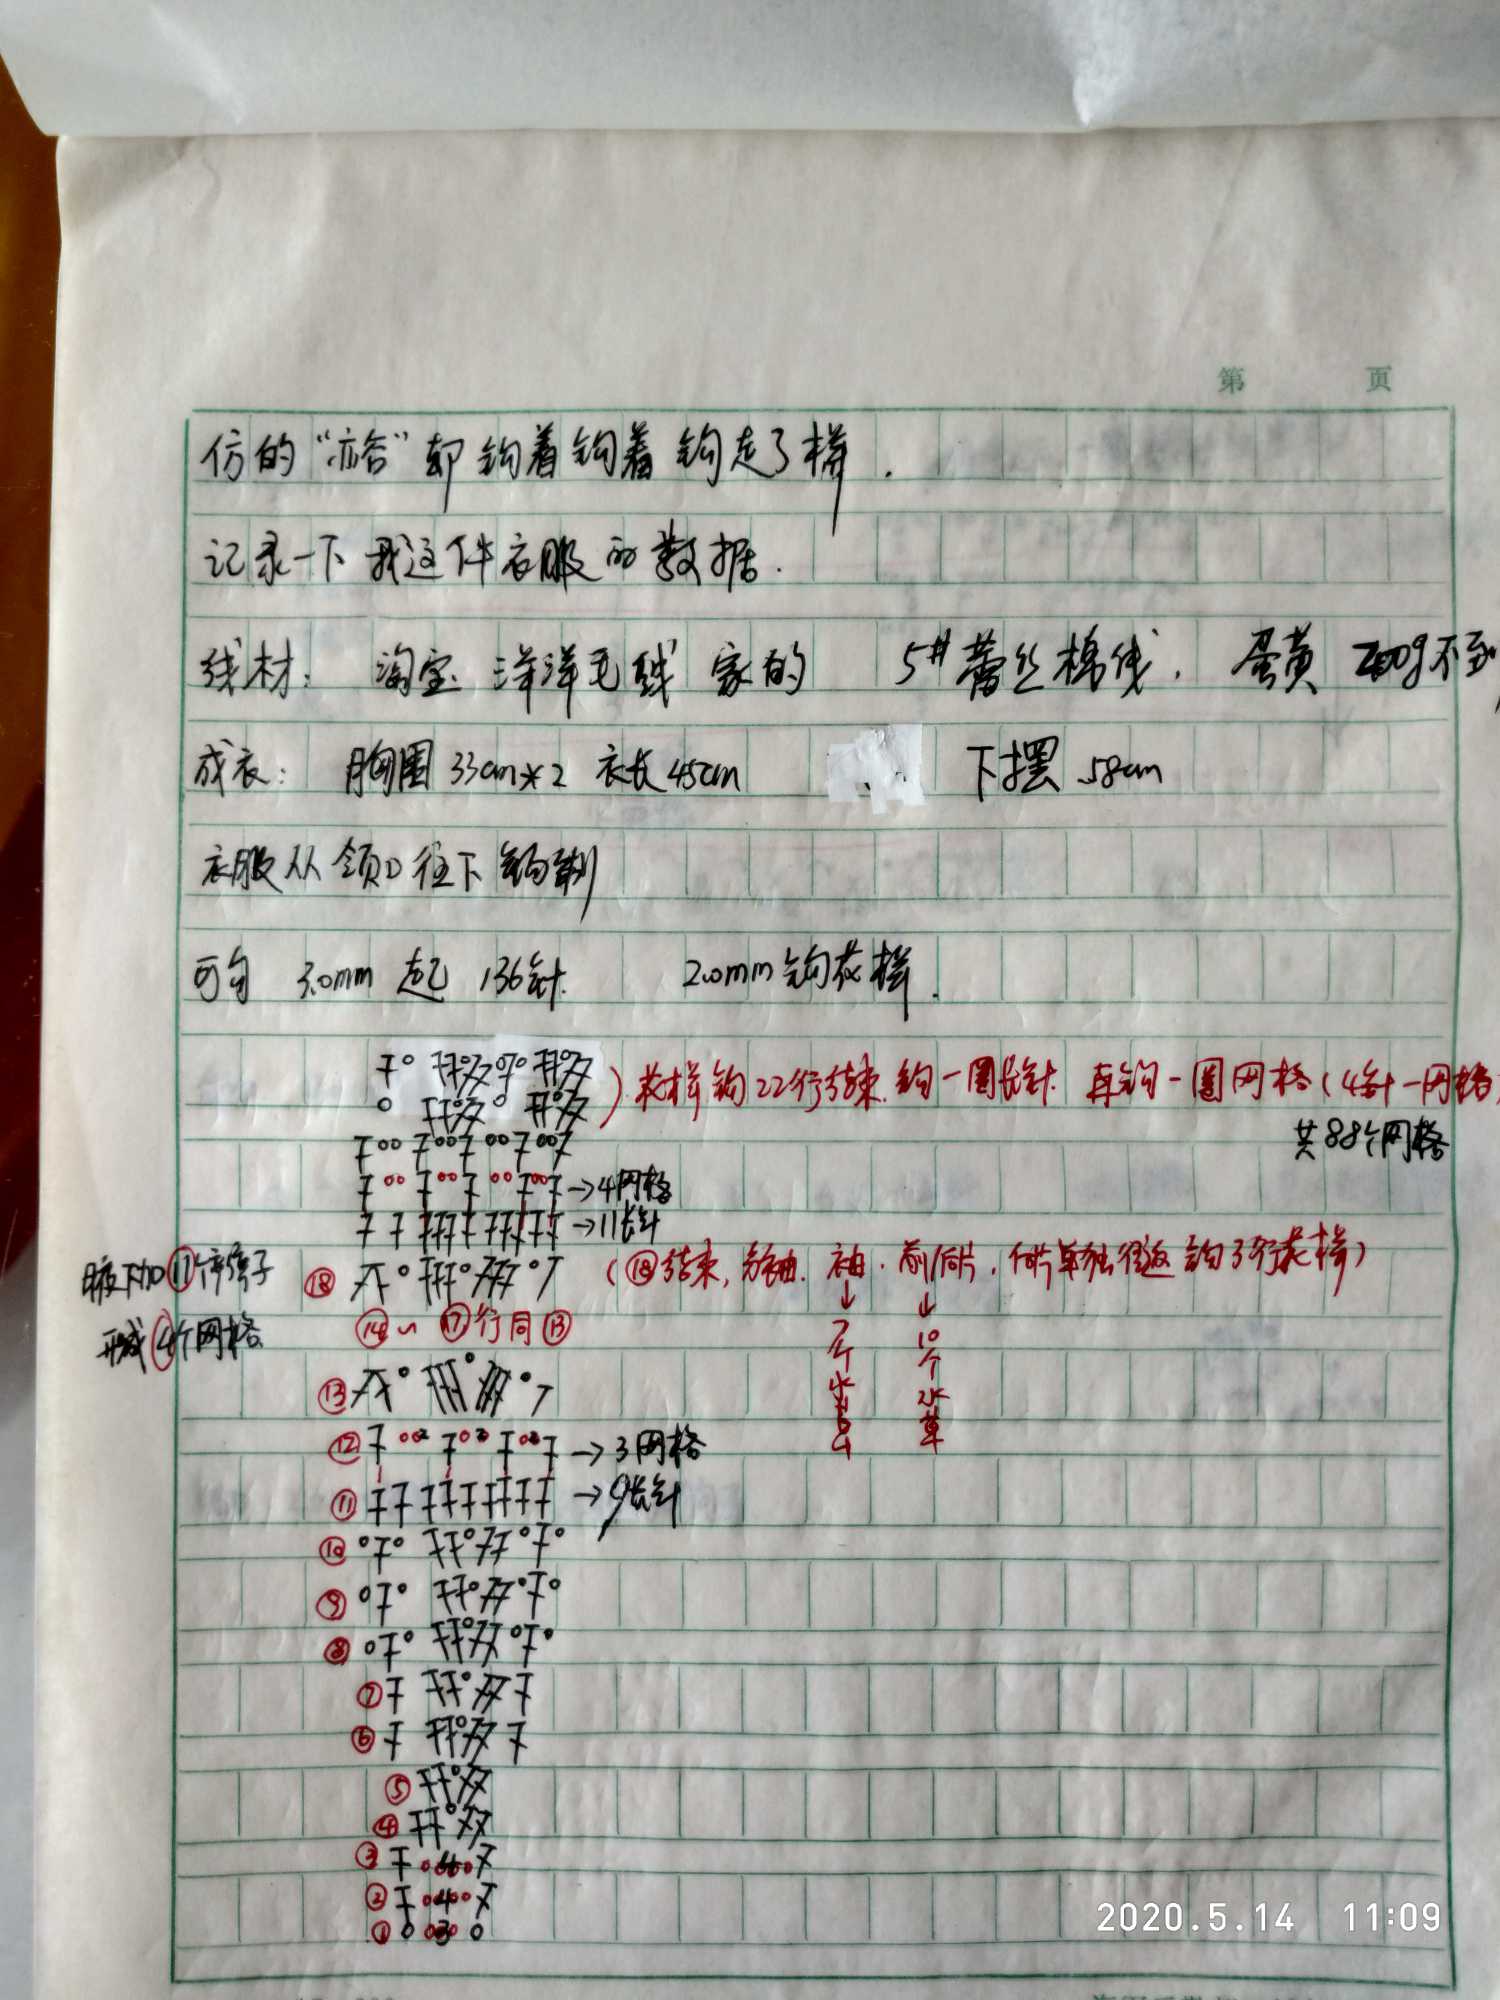 第 页
仿的“亦谷”却钩着钩着钩走了样.
记录一下我这件衣服的数据.
线材: 淘宝 洋洋毛线 家的 5#蕾丝棉线. 蛋黄 200g不到
成衣: 胸围 33cm*2 衣长45cm 下摆 58cm
衣服从领口往下钩制
可勾 3.0mm 起 136针. 2.0mm钩花样.
花样钩22行结束.钩一圈长针.再钩一圈网格(4针一网格
共88个网格
→4网格
→11长针
腋下加⑪个辫子 ⑱ (⑱结束,分袖.袖.前/后片,后片单独往返钩3行花样)
形成④个网格 ⑭~⑰行同⑬
7个水草 10个水草
⑬
⑫ →3网格
⑪ →9长针
⑩
⑨
⑧
⑦
⑥
⑤
④
③ 4
② 4
① 3
2020.5.14 11:09